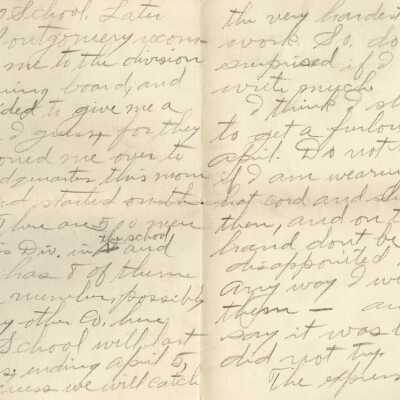 School. Later
Montgomery recom-
me to the division
ning board, and
ided to give me a
I guess for they
oned me over to
adquarters this morn
nd started
There are 5 0 men
is Div. in the school and
has 8 of them
member, possibly
y other Co. have
School will last
s, ending april 5,
guess we will catch
the very hardest
work. So. do
surprised if I
write much
I think I sh
to get a furlou
april. Do not
if I am wearin
hat cord and sh
then, and on t
brand. don't be
disappointed
any way I w
them — an
say it was
did not try.
The expres